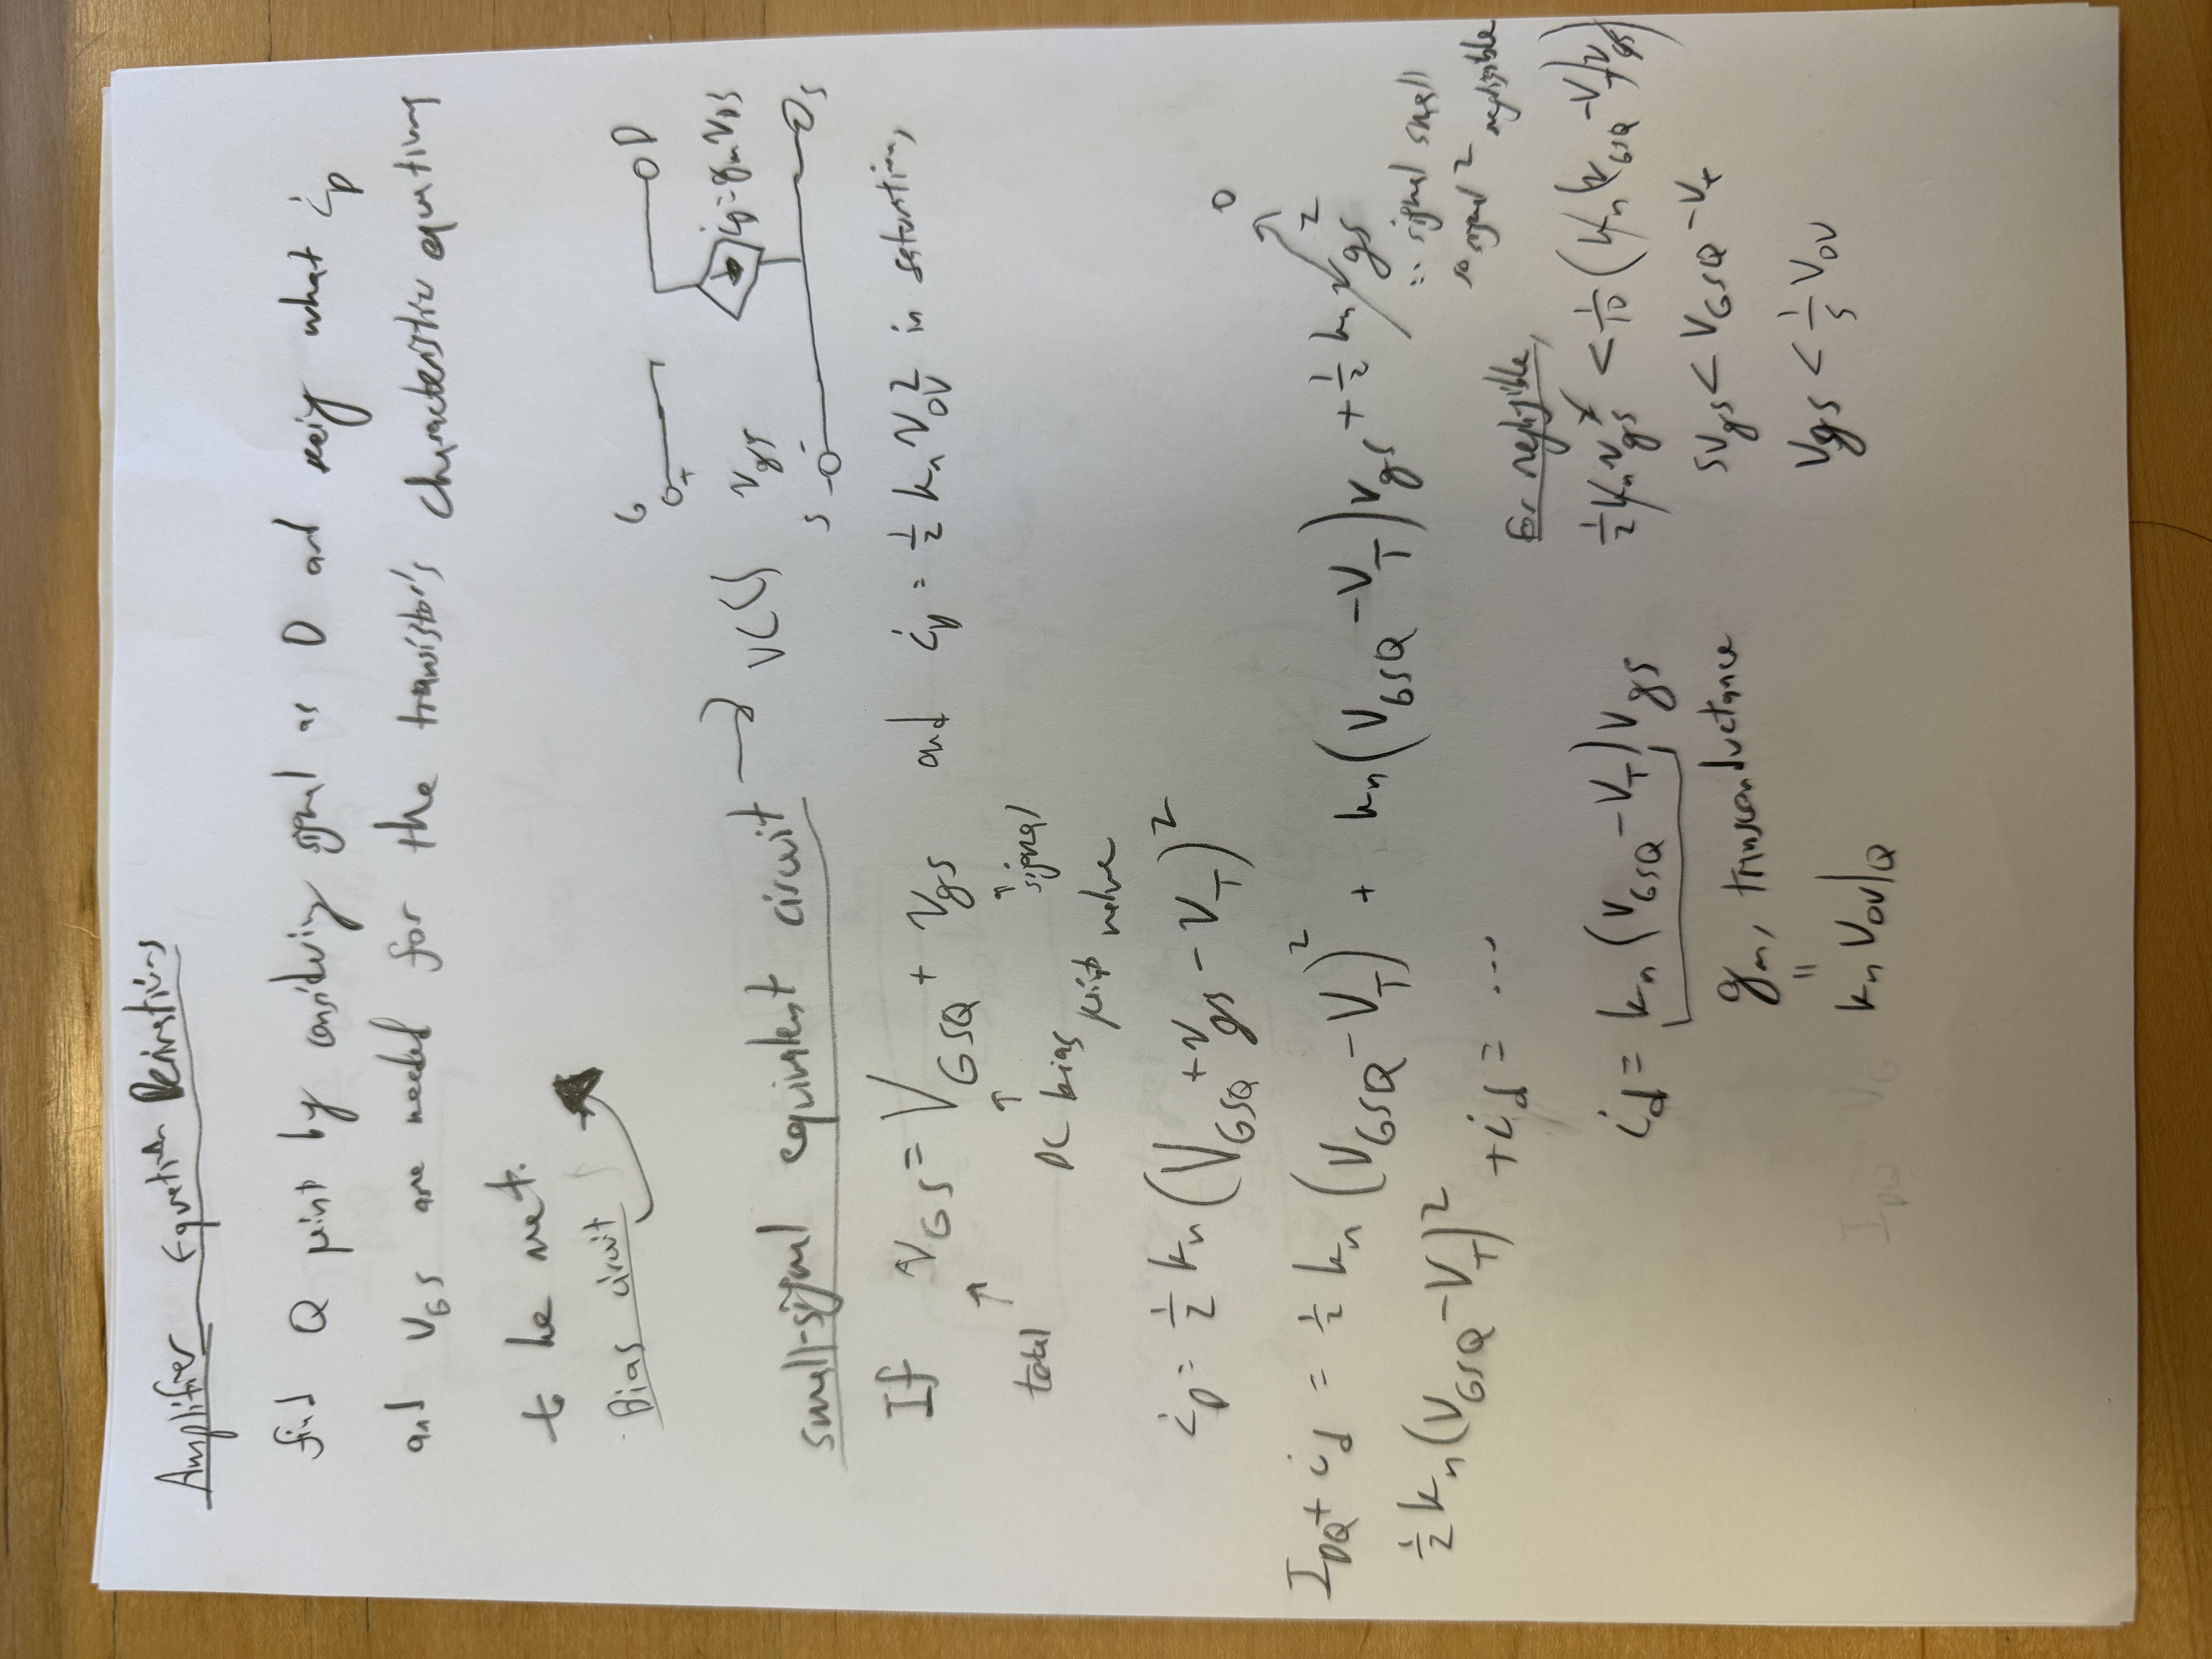 Amplifier Equation Derivations
find Q point by considering signal as 0 and seeing what i_D
and V_GS are needed for the transistor's characteristic equation
to be met.
Bias circuit
small-signal equivalent circuit → VCCS
G D
+ v_gs i_d = g_m v_gs
S - S
If v_GS = V_GSQ + v_gs and i_D = 1/2 k_n v_OV^2 in saturation,
↑ total ↑ DC bias point value ↑ signal
i_D = 1/2 k_n (V_GSQ + v_gs - V_T)^2
I_DQ + i_d = 1/2 k_n (V_GSQ - V_T)^2 + k_n (V_GSQ - V_T) v_gs + 1/2 k_n v_gs^2 → 0
∵ signal small
so signal^2 negligible
1/2 k_n (V_GSQ - V_T)^2 + i_d = ...
For negligible,
i_d = k_n (V_GSQ - V_T) v_gs
1/2 k_n v_gs^2 < 1/10 (k_n (V_GSQ - V_T) v_gs)
g_m, transconductance
5 v_gs < V_GSQ - V_T
=
k_n V_OV|Q
v_gs < 1/5 V_OV